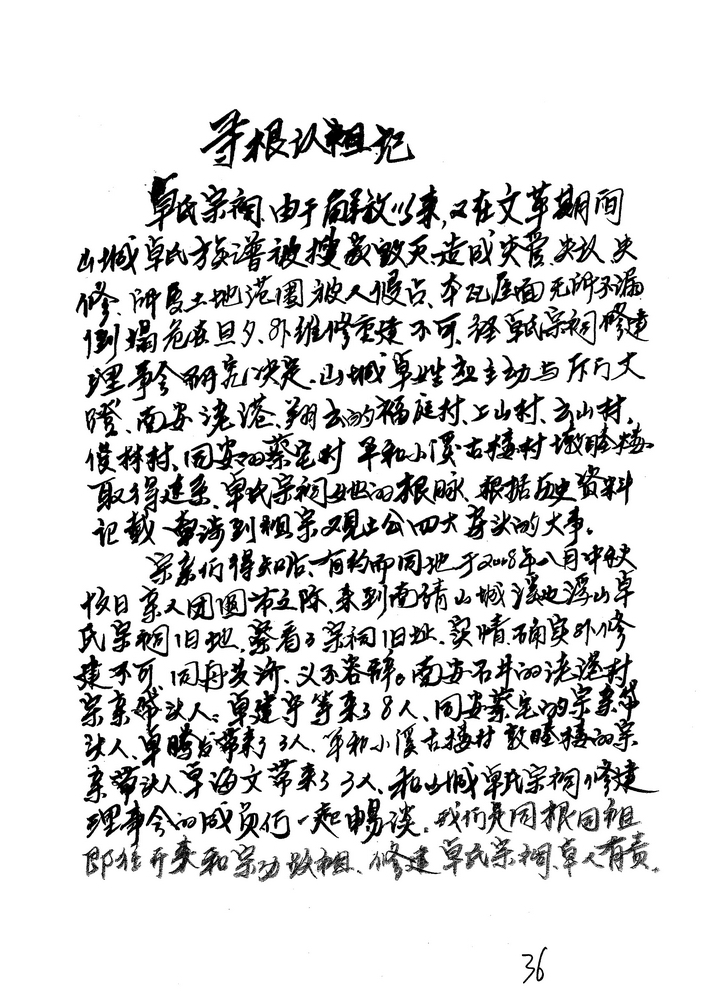 寻根认祖记
卓氏宗祠、由于解放以来,又在文革期间
山城卓氏族谱被搜藏毁灭,造成失管、失认、失
修、所属土地范围被人侵占、木瓦屋面无所不漏
倒塌危在旦夕、外维修重建不可、经卓氏宗祠修建
理事会研究决定、山城卓姓 主动与
南安 港、翔云的福庭村、上山村、云山村、
俊林村、同安的蔡宅村 平和小溪古楼村敦睦楼
取得连系、卓氏宗祠 的根脉、根据历史资料
记载 牵涉到祖宗 公四大房头的大事。
宗亲们得知后、有约而同地于2008年八月中秋
佳日亲人团圆 之际、来到南靖山城溪边浮山卓
氏宗祠旧地、察看了宗祠旧址、实情确实外修
建不可 同舟共济、义不容辞。南安石井的 港村
宗亲带头人、卓建宇等来了8人、同安蔡宅的宗亲带
头人、卓腾发带来了3人、平和小溪古楼村敦睦楼的宗
亲带头人卓海文带来了3人、和山城卓氏宗祠修建
理事会的成员们一起畅谈。我们是同根同祖
即往开来和宗功 祖、修建卓氏宗祠、卓人有责。
36